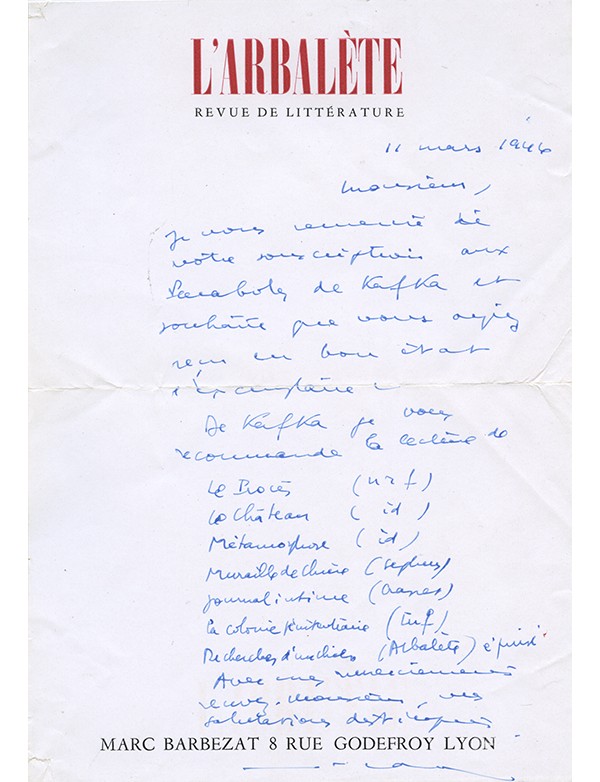 L'ARBALÈTE
REVUE DE LITTÉRATURE
11 mars 1946
Monsieur,
Je vous remercie de
votre souscription aux
Paraboles de Kafka et
souhaite que vous ayiez
reçu en bon état
l'exemplaire.
De Kafka je vous
recommande la lecture de
Le Procès (nrf)
Le Château (id)
Métamorphose (id)
Muraille de Chine (Seghers)
Journal intime (Grasset)
La colonie pénitentiaire (
Recherches d'un chien (Arbalète) épuisé
Avec mes remerciements
recevez, Monsieur, mes
salutations distinguées
MARC BARBEZAT 8 RUE GODEFROY LYON